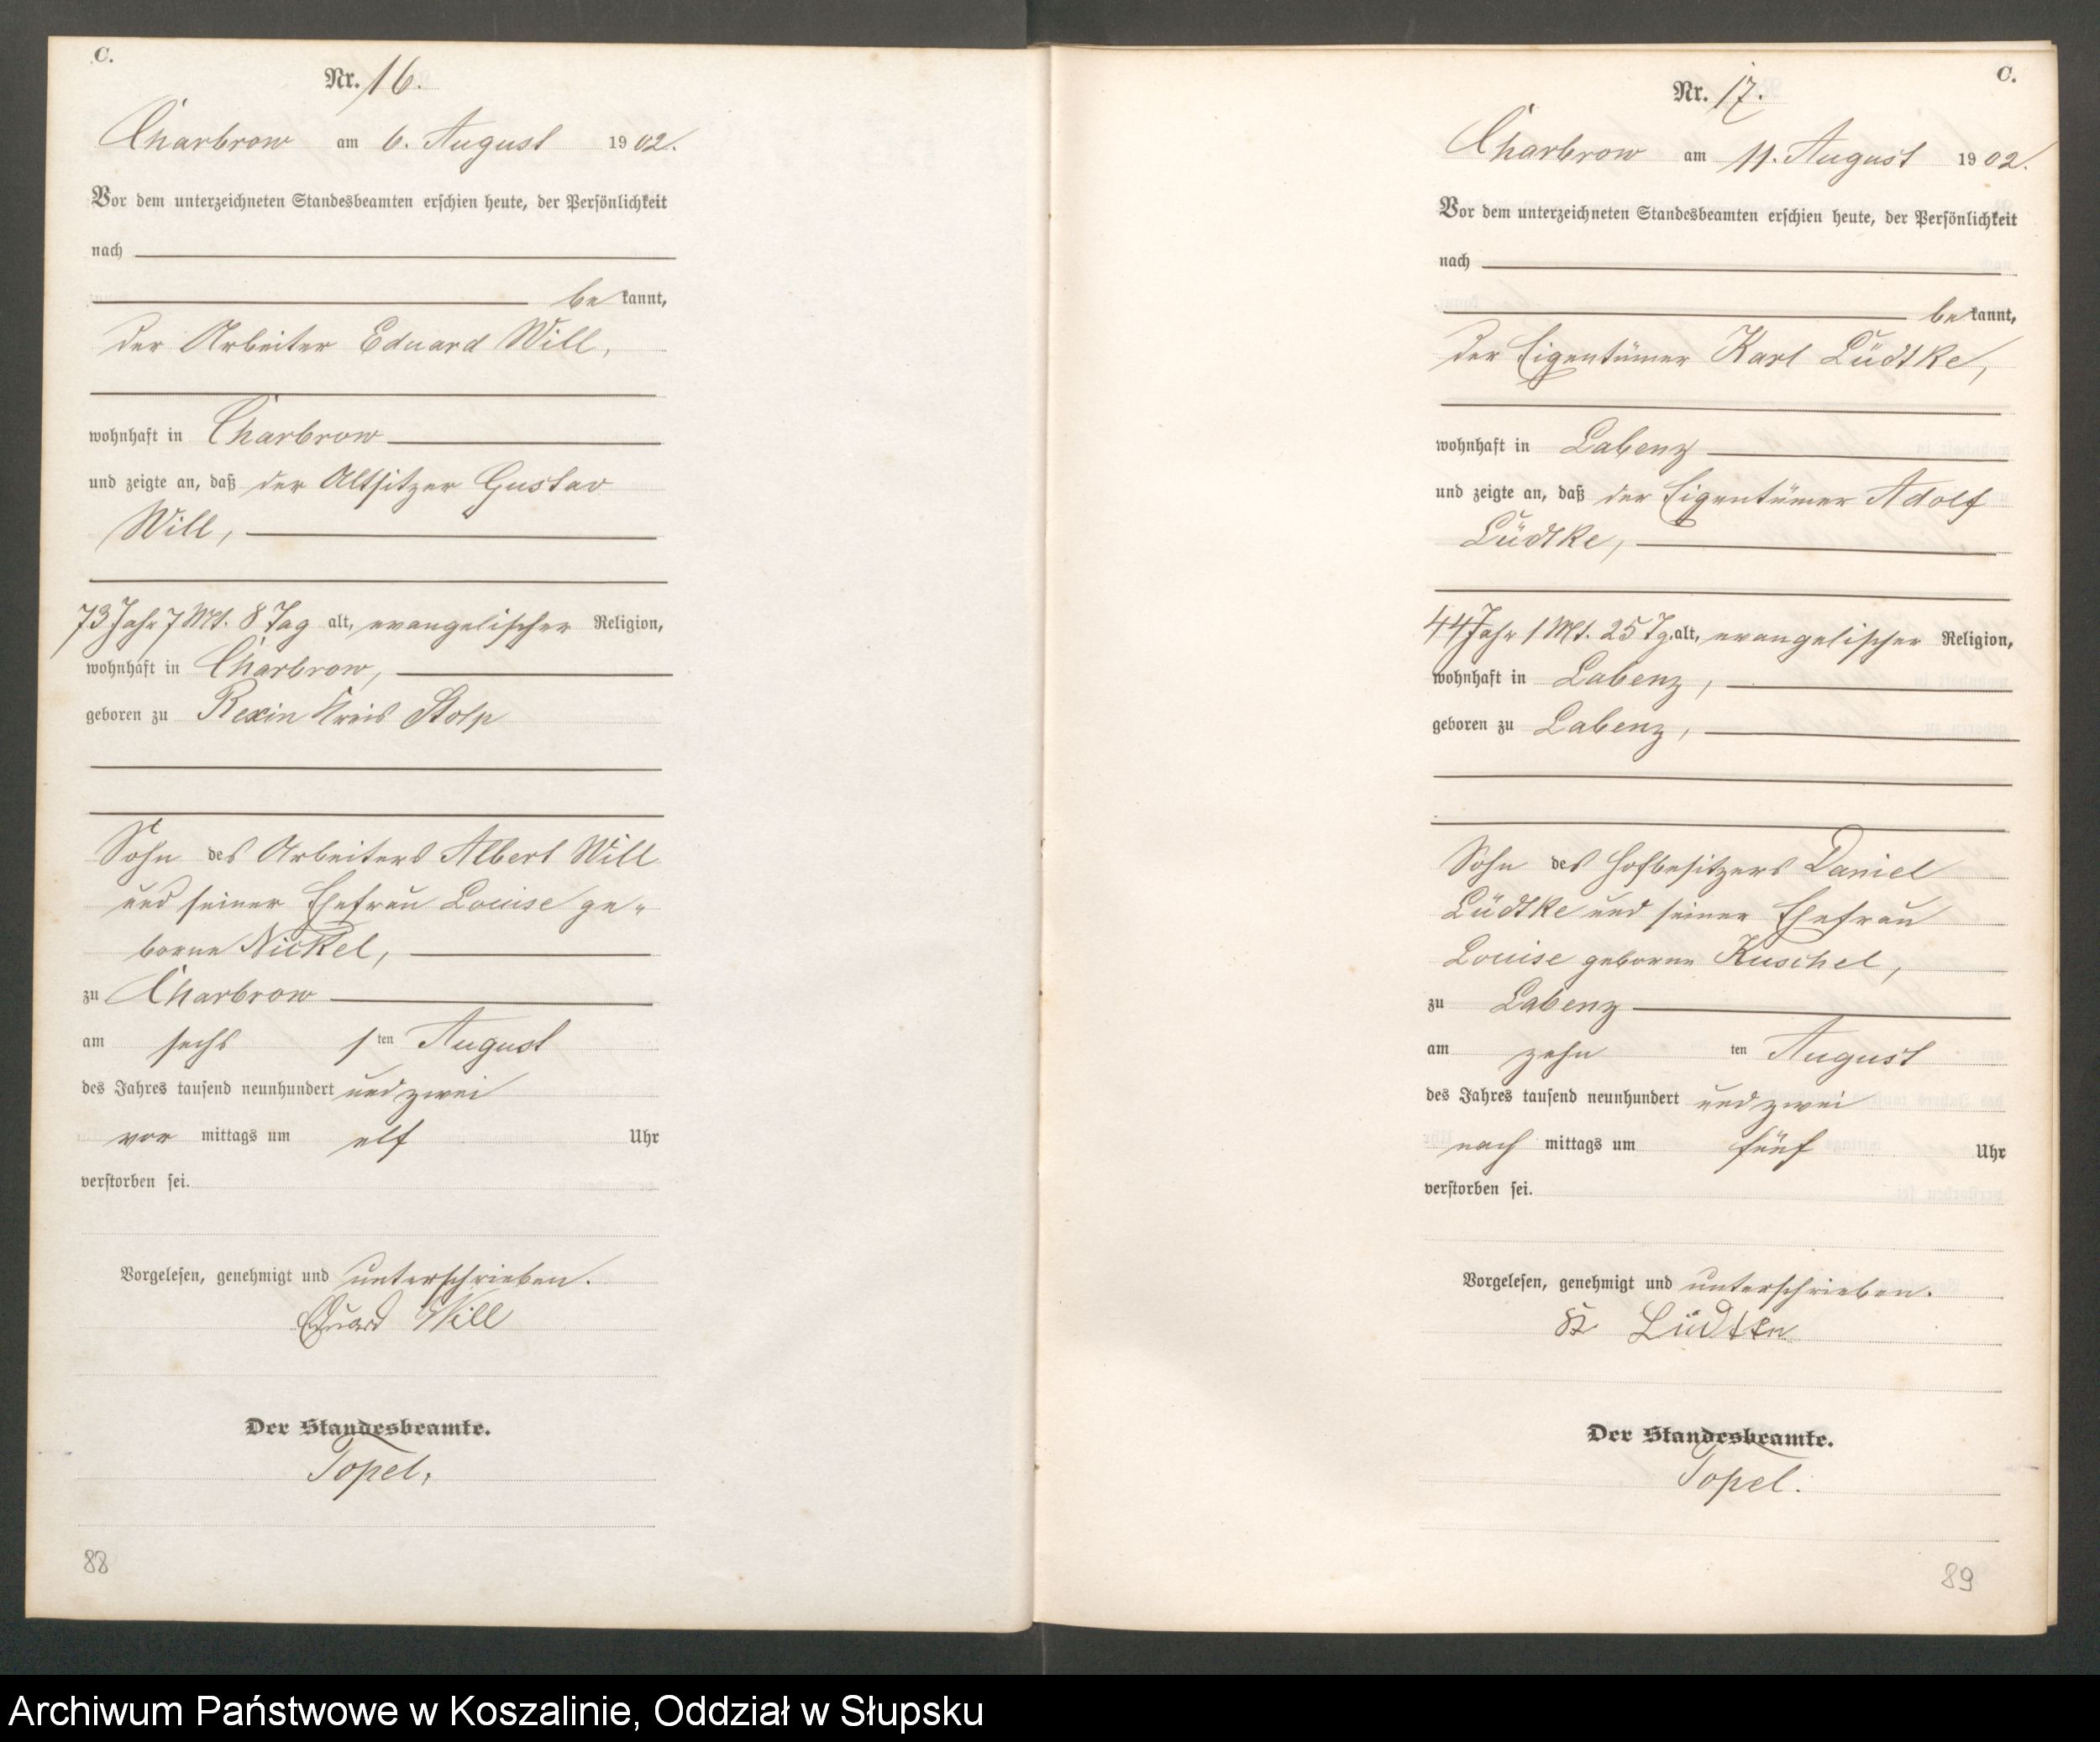 C.
Nr. 16.
Charbrow am 6. August 1902.
Vor dem unterzeichneten Standesbeamten erschien heute, der Persönlichkeit
nach
bekannt,
der Arbeiter Eduard Will,
wohnhaft in Charbrow
und zeigte an, daß der Altsitzer Gustav
Will,
73 Jahr 7 Mt. 8 Tag alt, evangelischer Religion,
wohnhaft in Charbrow,
geboren zu Rexin Kreis Stolp
Sohn des Arbeiters Albert Will
und seiner Ehefrau Louise ge-
borne Nickel,
zu Charbrow
am sechsten August
des Jahres tausend neunhundert und zwei
vormittags um elf Uhr
verstorben sei.
Vorgelesen, genehmigt und unterschrieben.
Eduard Will
Der Standesbeamte.
Topel.
88
C.
Nr. 17.
Charbrow am 11. August 1902.
Vor dem unterzeichneten Standesbeamten erschien heute, der Persönlichkeit
nach
bekannt,
der Eigentümer Karl Lüdtke,
wohnhaft in Labenz
und zeigte an, daß der Eigentümer Adolf
Lüdtke,
44 Jahr 1 Mt. 25 Tg. alt, evangelischer Religion,
wohnhaft in Labenz,
geboren zu Labenz,
Sohn des Hofbesitzers Daniel
Lüdtke und seiner Ehefrau
Louise geborne Kuschel,
zu Labenz
am zehnten August
des Jahres tausend neunhundert und zwei
nachmittags um fünf Uhr
verstorben sei.
Vorgelesen, genehmigt und unterschrieben.
K Lüdtke
Der Standesbeamte.
Topel.
89
Archiwum Państwowe w Koszalinie, Oddział w Słupsku